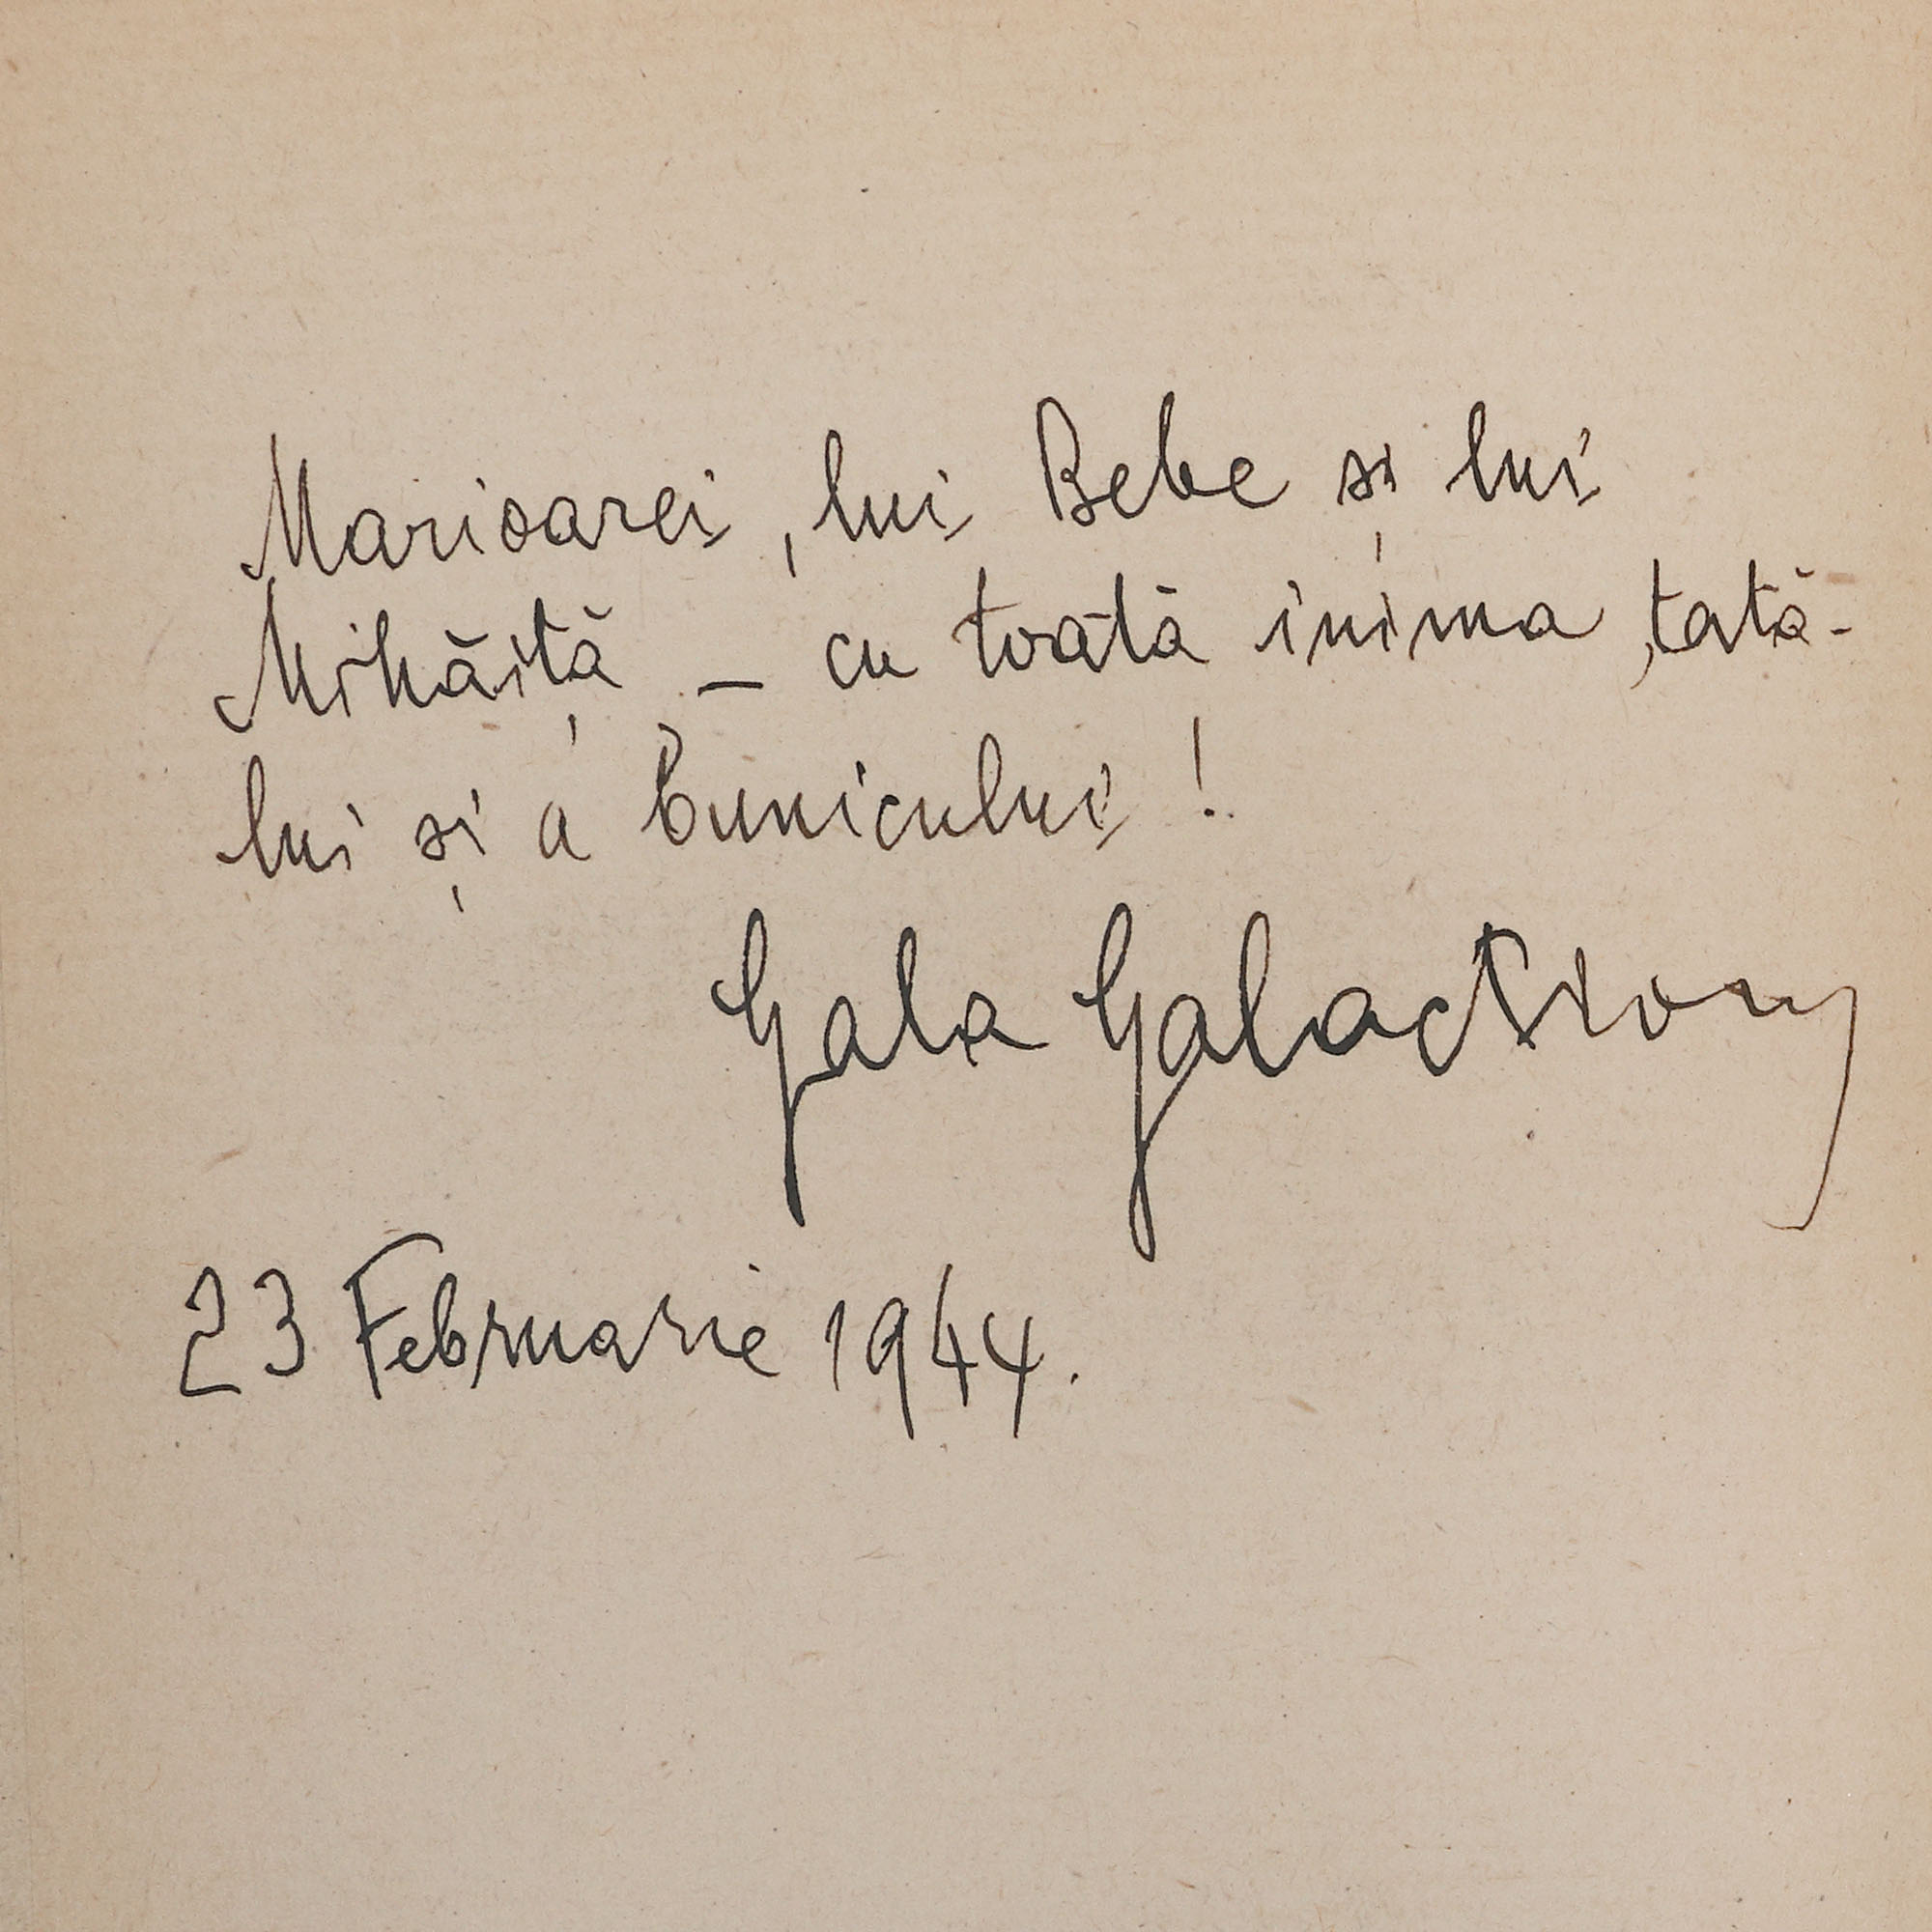 Marioarei, lui Bebe și lui
Mihăiță – cu toată inima, tată-
lui și a bunicului!
Gala Galaction
23 Februarie 1944.